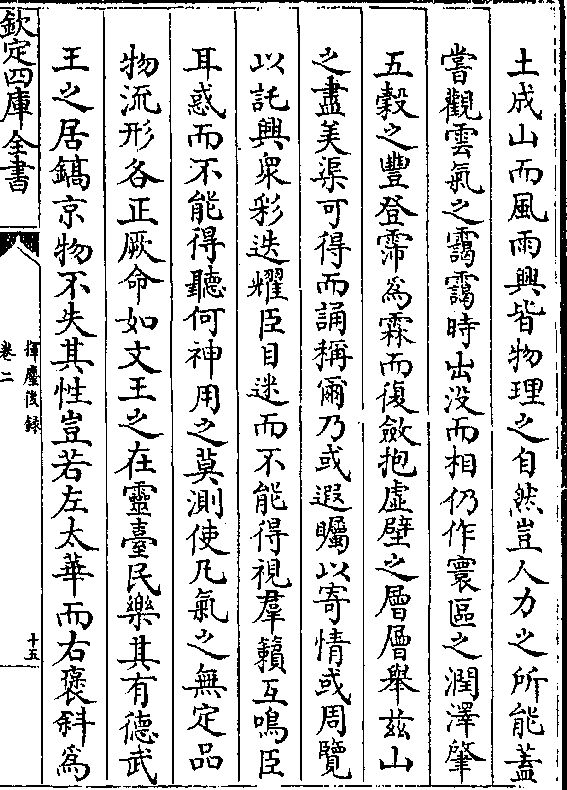 土成山而風雨興皆物理之自然豈人力之所能蓋
嘗觀雲氣之靄靄時出没而相仍作寰區之潤澤肇
五穀之豐登霈為霖而復斂抱虚壁之層層舉兹山
之盡美渠可得而誦稱爾乃或遐矚以寄情或周覽
以託興衆彩迭耀臣目迷而不能得視羣籟互鳴臣
耳惑而不能得聽何神用之莫測使凡氣之無定品
物流形各正厥命如文王之在靈臺民樂其有德武
王之居鎬京物不失其性豈若左太華而右褒斜為
欽定四庫全書
揮麈後録
卷二
十五